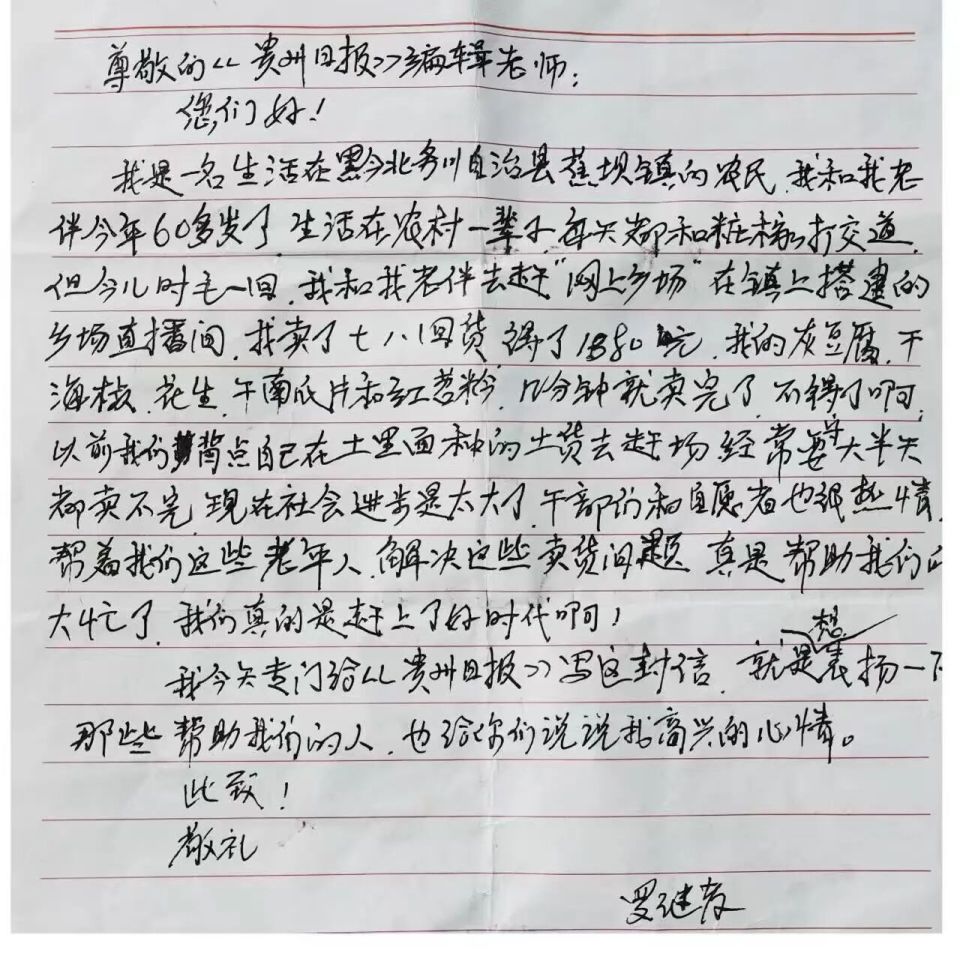 尊敬的《贵州日报》编辑老师:
您们好!
我是一名生活在黔北务川自治县蕉坝镇的农民,我和我老
伴今年60多岁了,生活在农村一辈子,每天都和庄稼打交道,
但今儿时毛一回,我和我老伴去赶"网上乡场"在镇上搭建的
乡场直播间,我卖了七八回货,得了1380元,我的灰豆腐,干
海椒,花生,干南瓜片和红苕粉,几分钟就卖完了,不得了啊,
以前我们背点自己在土里面种的土货去赶场经常要守大半天
都卖不完,现在社会进步是太大了,干部们和自愿者也很热情,
帮着我们这些老年人,解决这些卖货问题,真是帮助我们的
大忙了,我们真的是赶上了好时代啊!
我今天专门给《贵州日报》写这封信,就是想表扬一下
那些帮助我们的人,也给你们说说我高兴的心情。
此致!
敬礼
罗继发